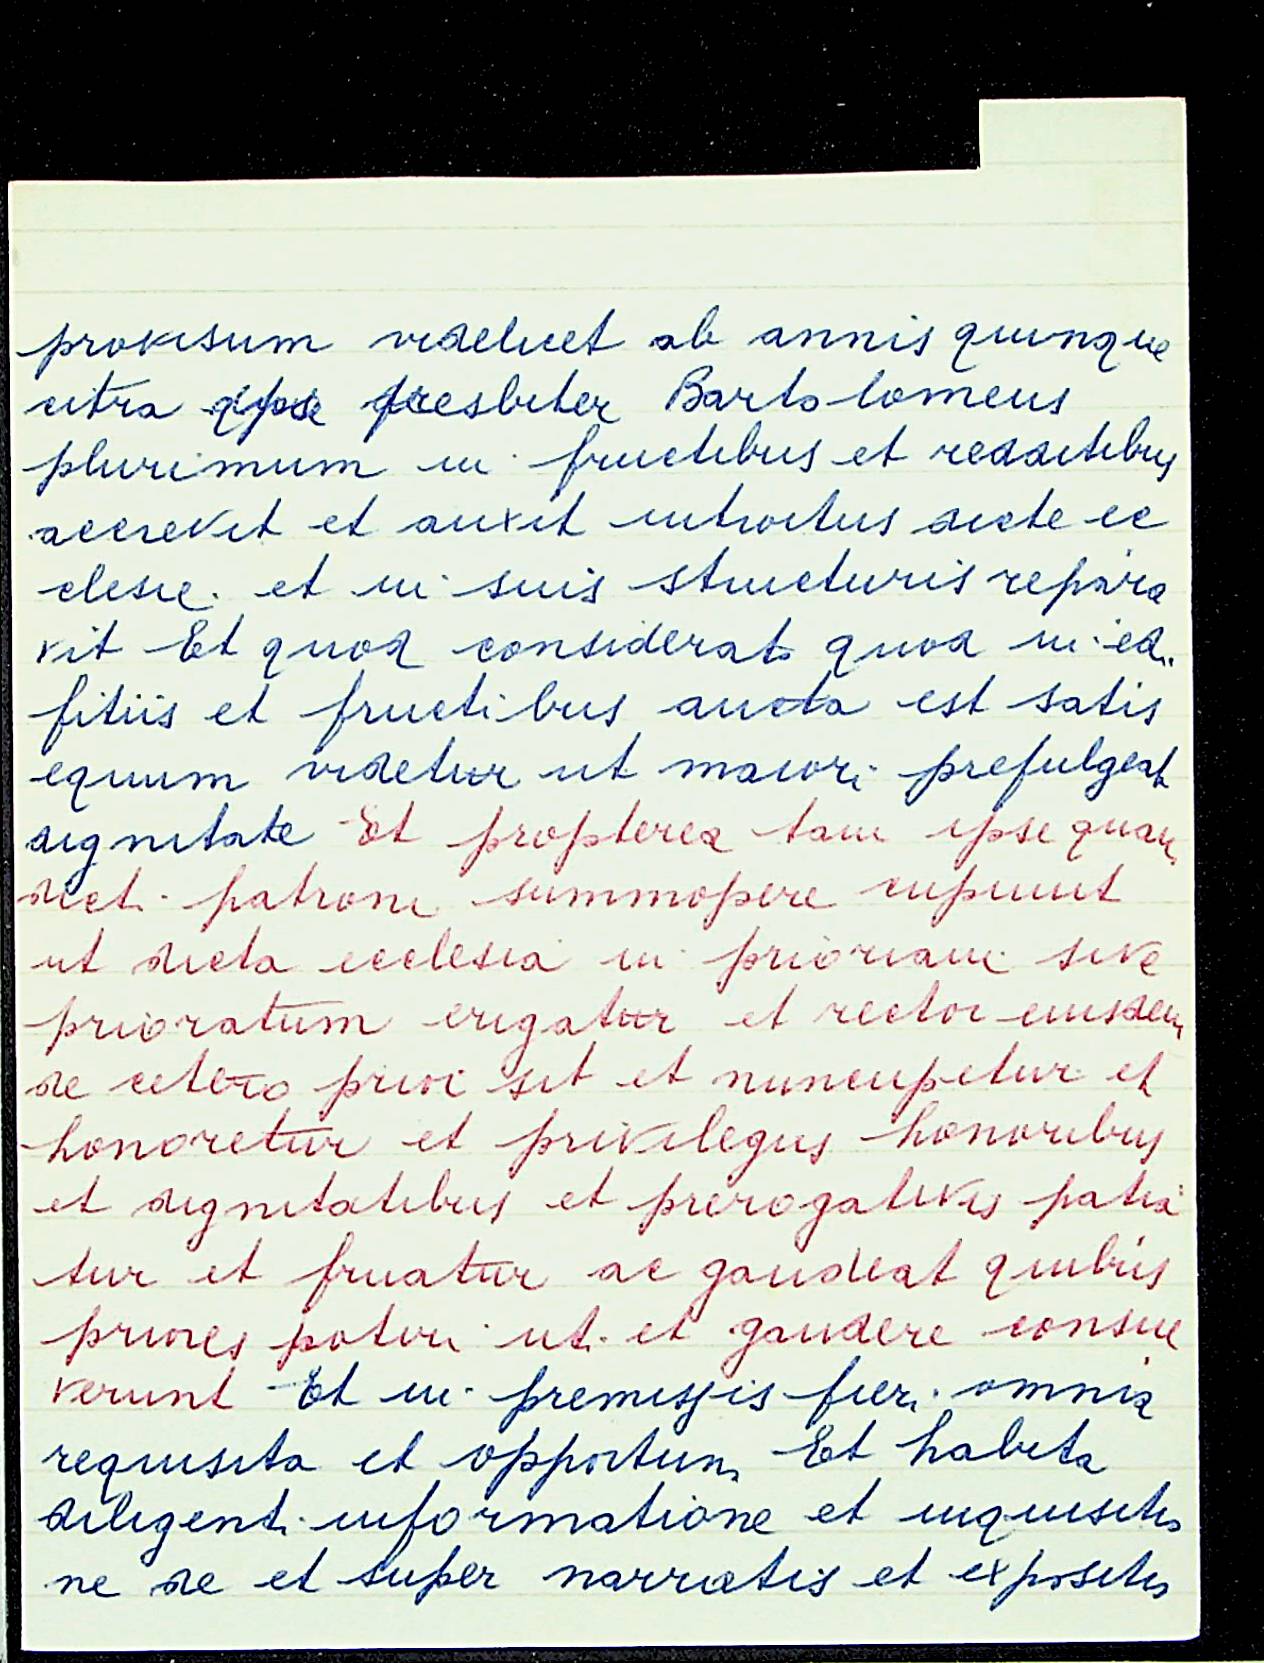 provisum videlicet ab annis quinque
citra ipse presbiter Bartolomeus
plurimum in fructibus et redditibus
accrevit et auxit introitus dicte ec
clesie. et in suis structuris repara
vit Et quod considerato quod in edi
fitiis et fructibus aucta est satis
equum videtur ut maiori prefulgeat
dignitate Et propterea tam ipse quam
dicti patroni summopere cupiunt
ut dicta ecclesia in prioriam sive
prioratum erigatur et rector eiusdem
de cetero prior sit et nuncupetur et
honoretur et privilegiis honoribus
et dignitatibus et prerogativis potia
tur et fruatur ac gaudeat quibus
priores potiri uti et gaudere consue
verunt Et in premissis fieri omnia
requisita et opportuna Et habita
diligenti informatione et inquisitio
ne de et super narratis et expositis